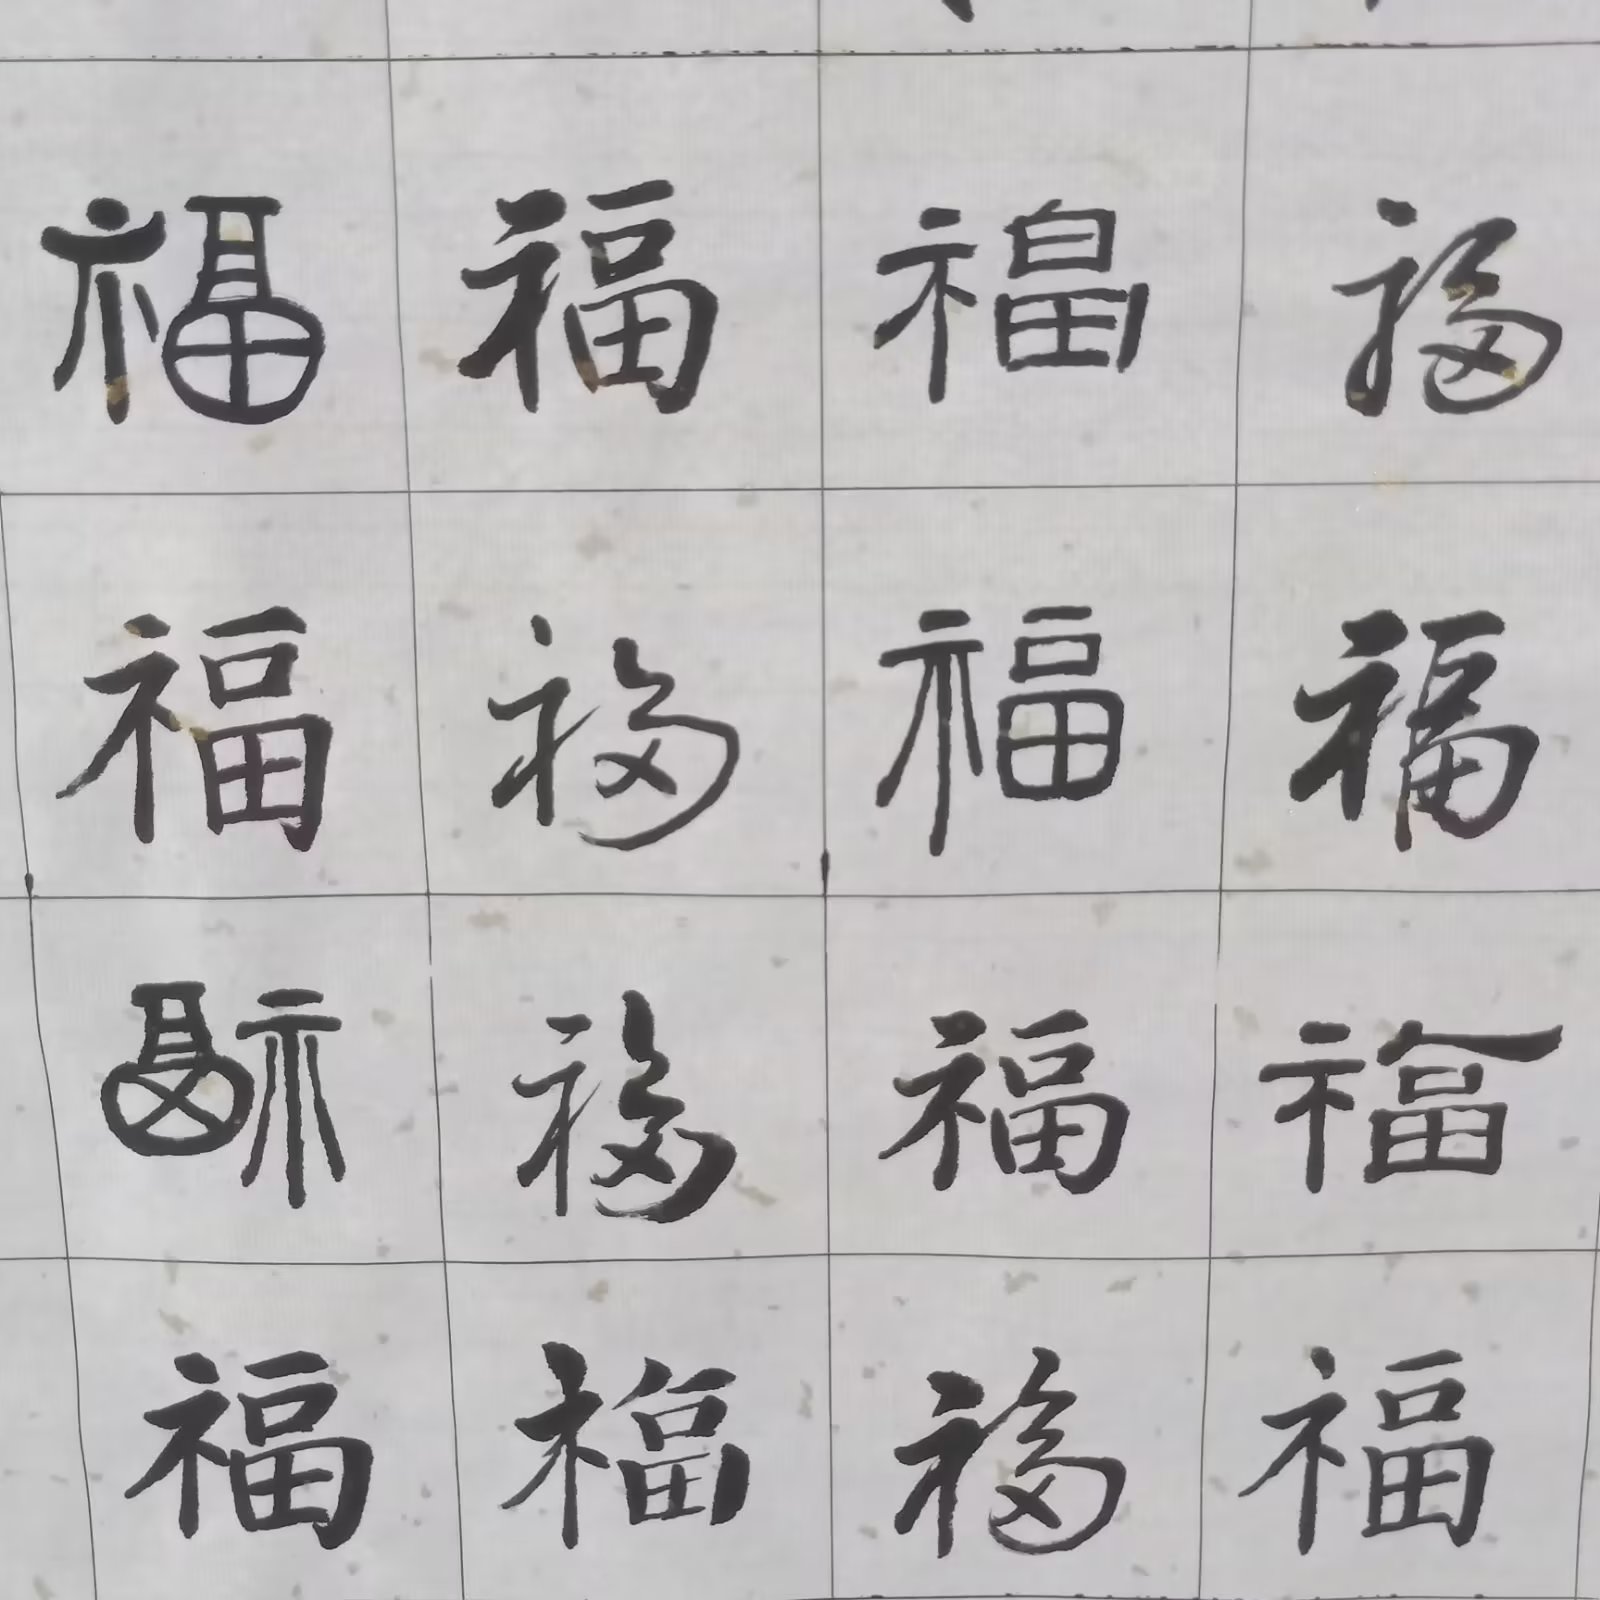 福福福福
福福福福
福福福福
福福福福